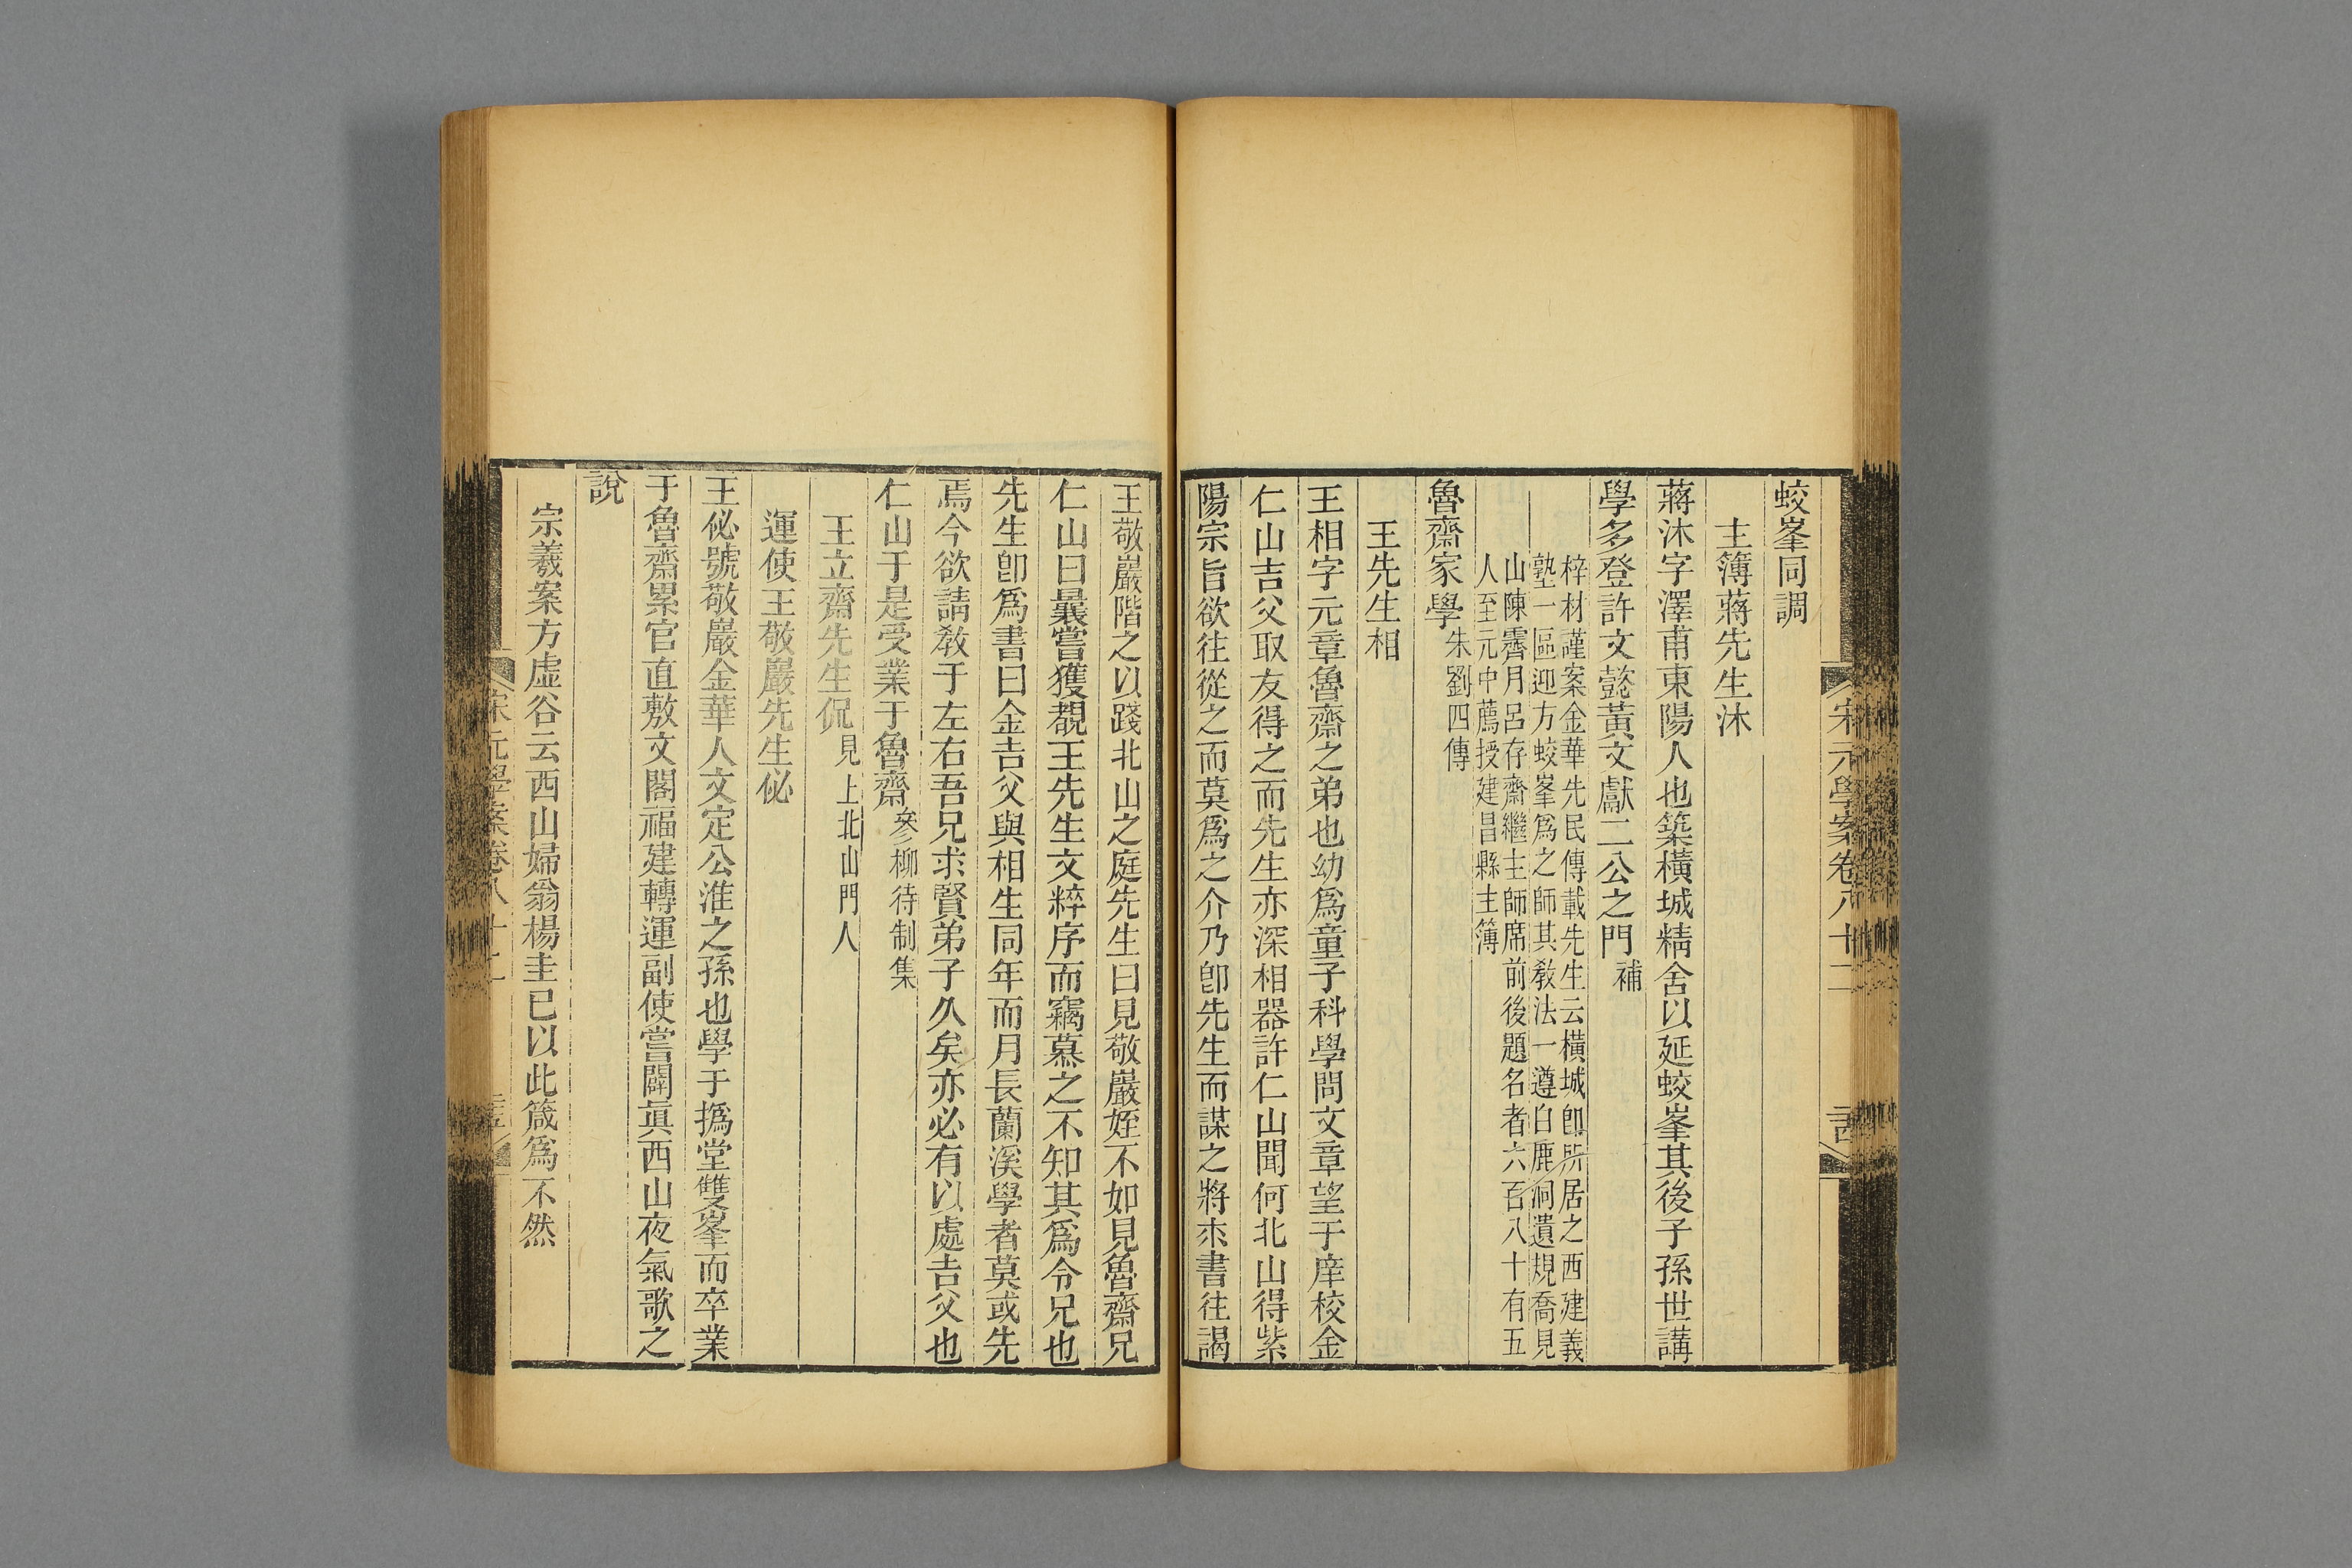 蛟峯同調
主簿蔣先生沐
蔣沐字澤甫東陽人也築橫城精舍以延蛟峯其後子孫世講
學多登許文懿黃文獻二公之門補
梓材謹案金華先民傳載先生云橫城卽所居之西建義
塾一區迎方蛟峯爲之師其敎法一遵白鹿洞遺規喬見
山陳霽月呂存齋繼主師席前後題名者六百八十有五
人至元中薦授建昌縣主簿
魯齋家學朱劉四傳
王先生相
王相字元章魯齋之弟也幼爲童子科學問文章望于庠校金
仁山吉父取友得之而先生亦深相器許仁山聞何北山得紫
陽宗旨欲往從之而莫爲之介乃卽先生而謀之將朩書往謁
王敬巖階之以踐北山之庭先生曰見敬巖姪不如見魯齋兄
仁山曰曩嘗獲覩王先生文粹序而竊慕之不知其爲令兄也
先生卽爲書曰金吉父與相生同年而月長蘭溪學者莫或先
焉今欲請敎于左右吾兄求賢弟子久矣亦必有以處吉父也
仁山于是受業于魯齋參柳待制集
王立齋先生侃見上北山門人
運使王敬巖先生佖
王佖號敬巖金華人文定公淮之孫也學于撝堂雙峯而卒業
于魯齋累官直敷文閣福建轉運副使嘗闢眞西山夜氣歌之
說
宗羲案方虛谷云西山婦翁楊圭已以此箴爲不然
宋元學案卷八十二